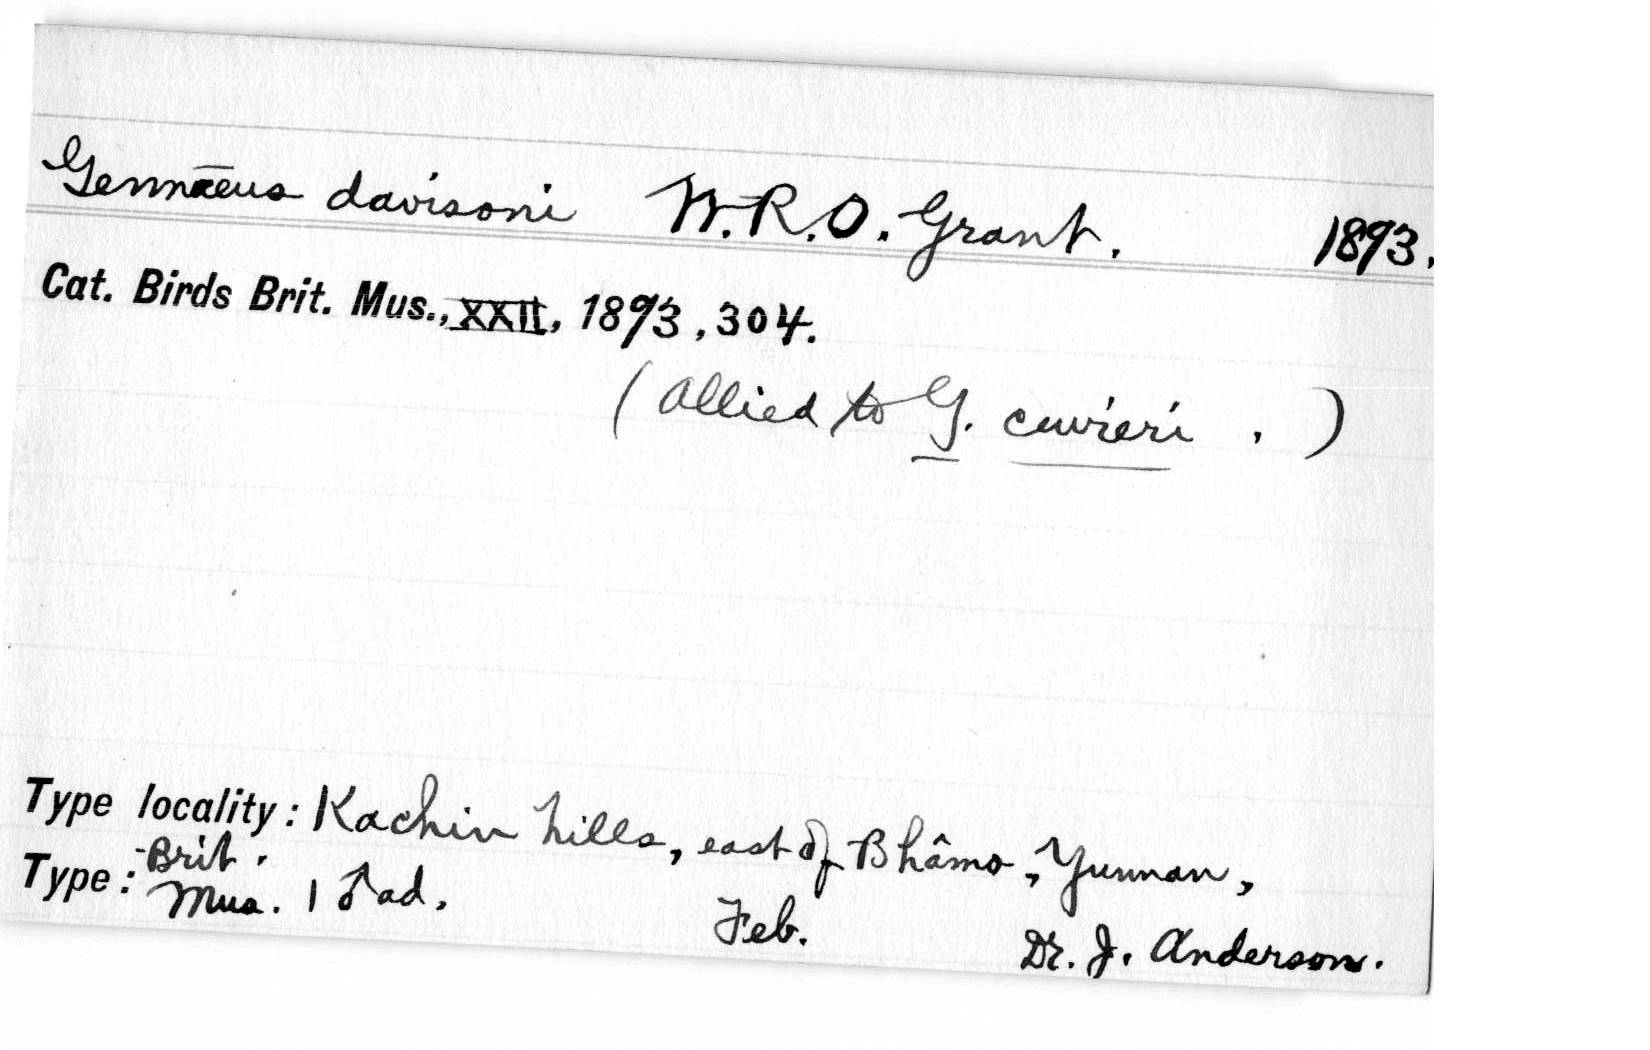 Gennæus davisoni W.R.O. Grant. 1893.
Cat. Birds Brit. Mus., XXII, 1893, 304.
(Allied to G. cuvieri . )
Type locality: Kachin hills, east of Bhâmo, Yunnan,
Type: Brit. Mus. 1 ♂ ad. Feb. Dr. J. Anderson.